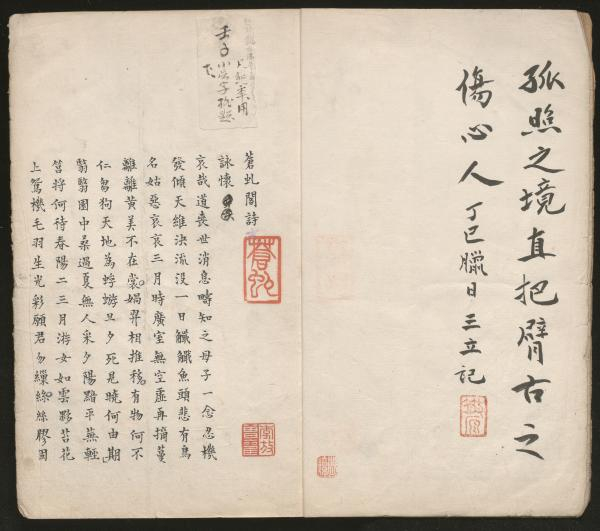 孤照之境直把臂古之
傷心人 丁巳臘日三立記
壬子
蒼虬閣詩
詠懷
哀哉道喪世消息疇知之母子一念忍機
發傾天維決流沒一日鱻鱻魚頭悲有鳥
名姑惡哀哀三月時廣室無空虛再摘蔓
離離黃美不在裳娟羿相推移有物何不
仁芻狗天地為蜉蝣旦夕死見曉何由期
翳翳園中桑過夏無人采夕陽黯平蕪輕
筥將何待春陽二三月游女如雲夥苕花
上鴛機毛羽生光彩願君勿繅絲膠固
蒼虬